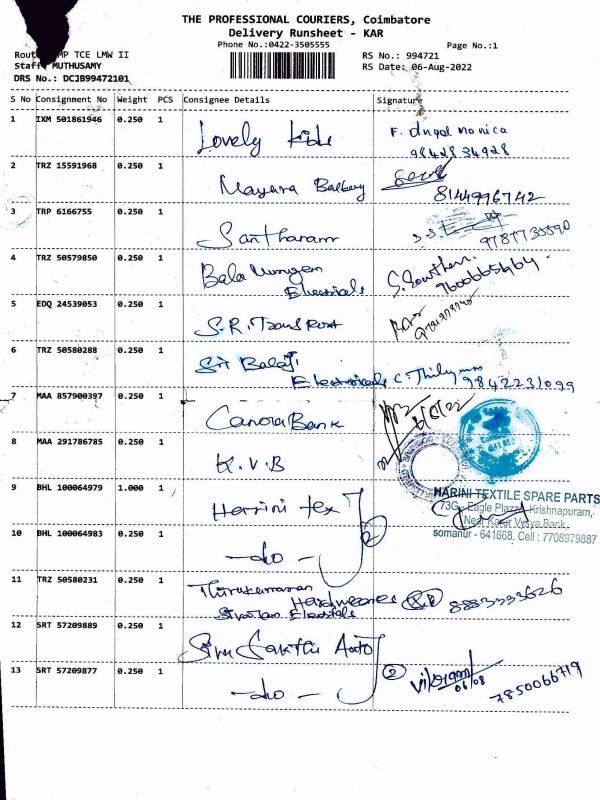 THE PROFESSIONAL COURIERS, Coimbatore
Delivery Runsheet - KAR
Phone No.:0422-3505555
Page No.:1
MP TCE LMW II
RS No.: 994721
Staff MUTHUSAMY
RS Date: 06-Aug-2022
DRS No.: DCJB99472101
S No Consignment No Weight PCS Consignee Details Signature
1 IXM 501861946 0.250 1 Lovely Kids F.
9842834928
2 TRZ 15591968 0.250 1 Mayura
8144996742
3 TRP 6166755 0.250 1 Santharam
4 TRZ 50579850 0.250 1 Bala Murugan
Electricals
5 EDQ 24539053 0.250 1 S.R. Transport
6 TRZ 50580288 0.250 1 Sri Balaji
Electricals C.
9842231099
7 MAA 857900397 0.250 1 Canara Bank
8 MAA 291786785 0.250 1 K.V.B
9 BHL 100064979 1.000 1 Harrini tex
2
HARINI TEXTILE SPARE PARTS
73G, Eagle Plazza, Krishnapuram,
Near Karur Vysya Bank,
somanur - 641668. Cell : 7708979887
10 BHL 100064983 0.250 1 -do-
11 TRZ 50580231 0.250 1
Hardwares 8883333626
12 SRT 57209889 0.250 1 Siva Sakthi Auto
13 SRT 57209877 0.250 1 -do- 2 Vikram
06/08
7850066719